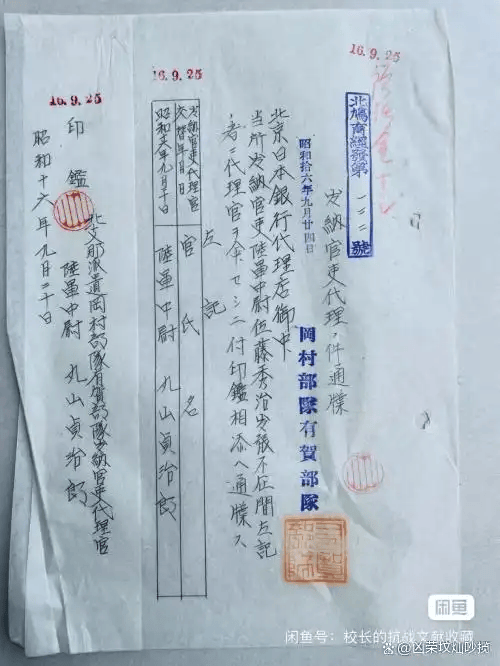 16.9.25
號
出納官吏代理ノ件通牒
昭和拾六年九月廿四日
岡村部隊有賀部隊
北京日本銀行代理店御中
当所出納官吏陸軍中尉伍藤秀治出張不在間左記
者ニ代理官ヲ命セシニ付印鑑相添ヘ通牒ス
左記
16.9.25
出納官吏代理官
交替年月日
官氏名
昭和十六年九月二十日
陸軍中尉 丸山貞治郎
16.9.25
印鑑
北支那派遣岡村部隊有賀部隊出納官吏代理官
陸軍中尉 丸山貞治郎
昭和十六年九月二十日
闲鱼
闲鱼号：校长的抗战文献收藏